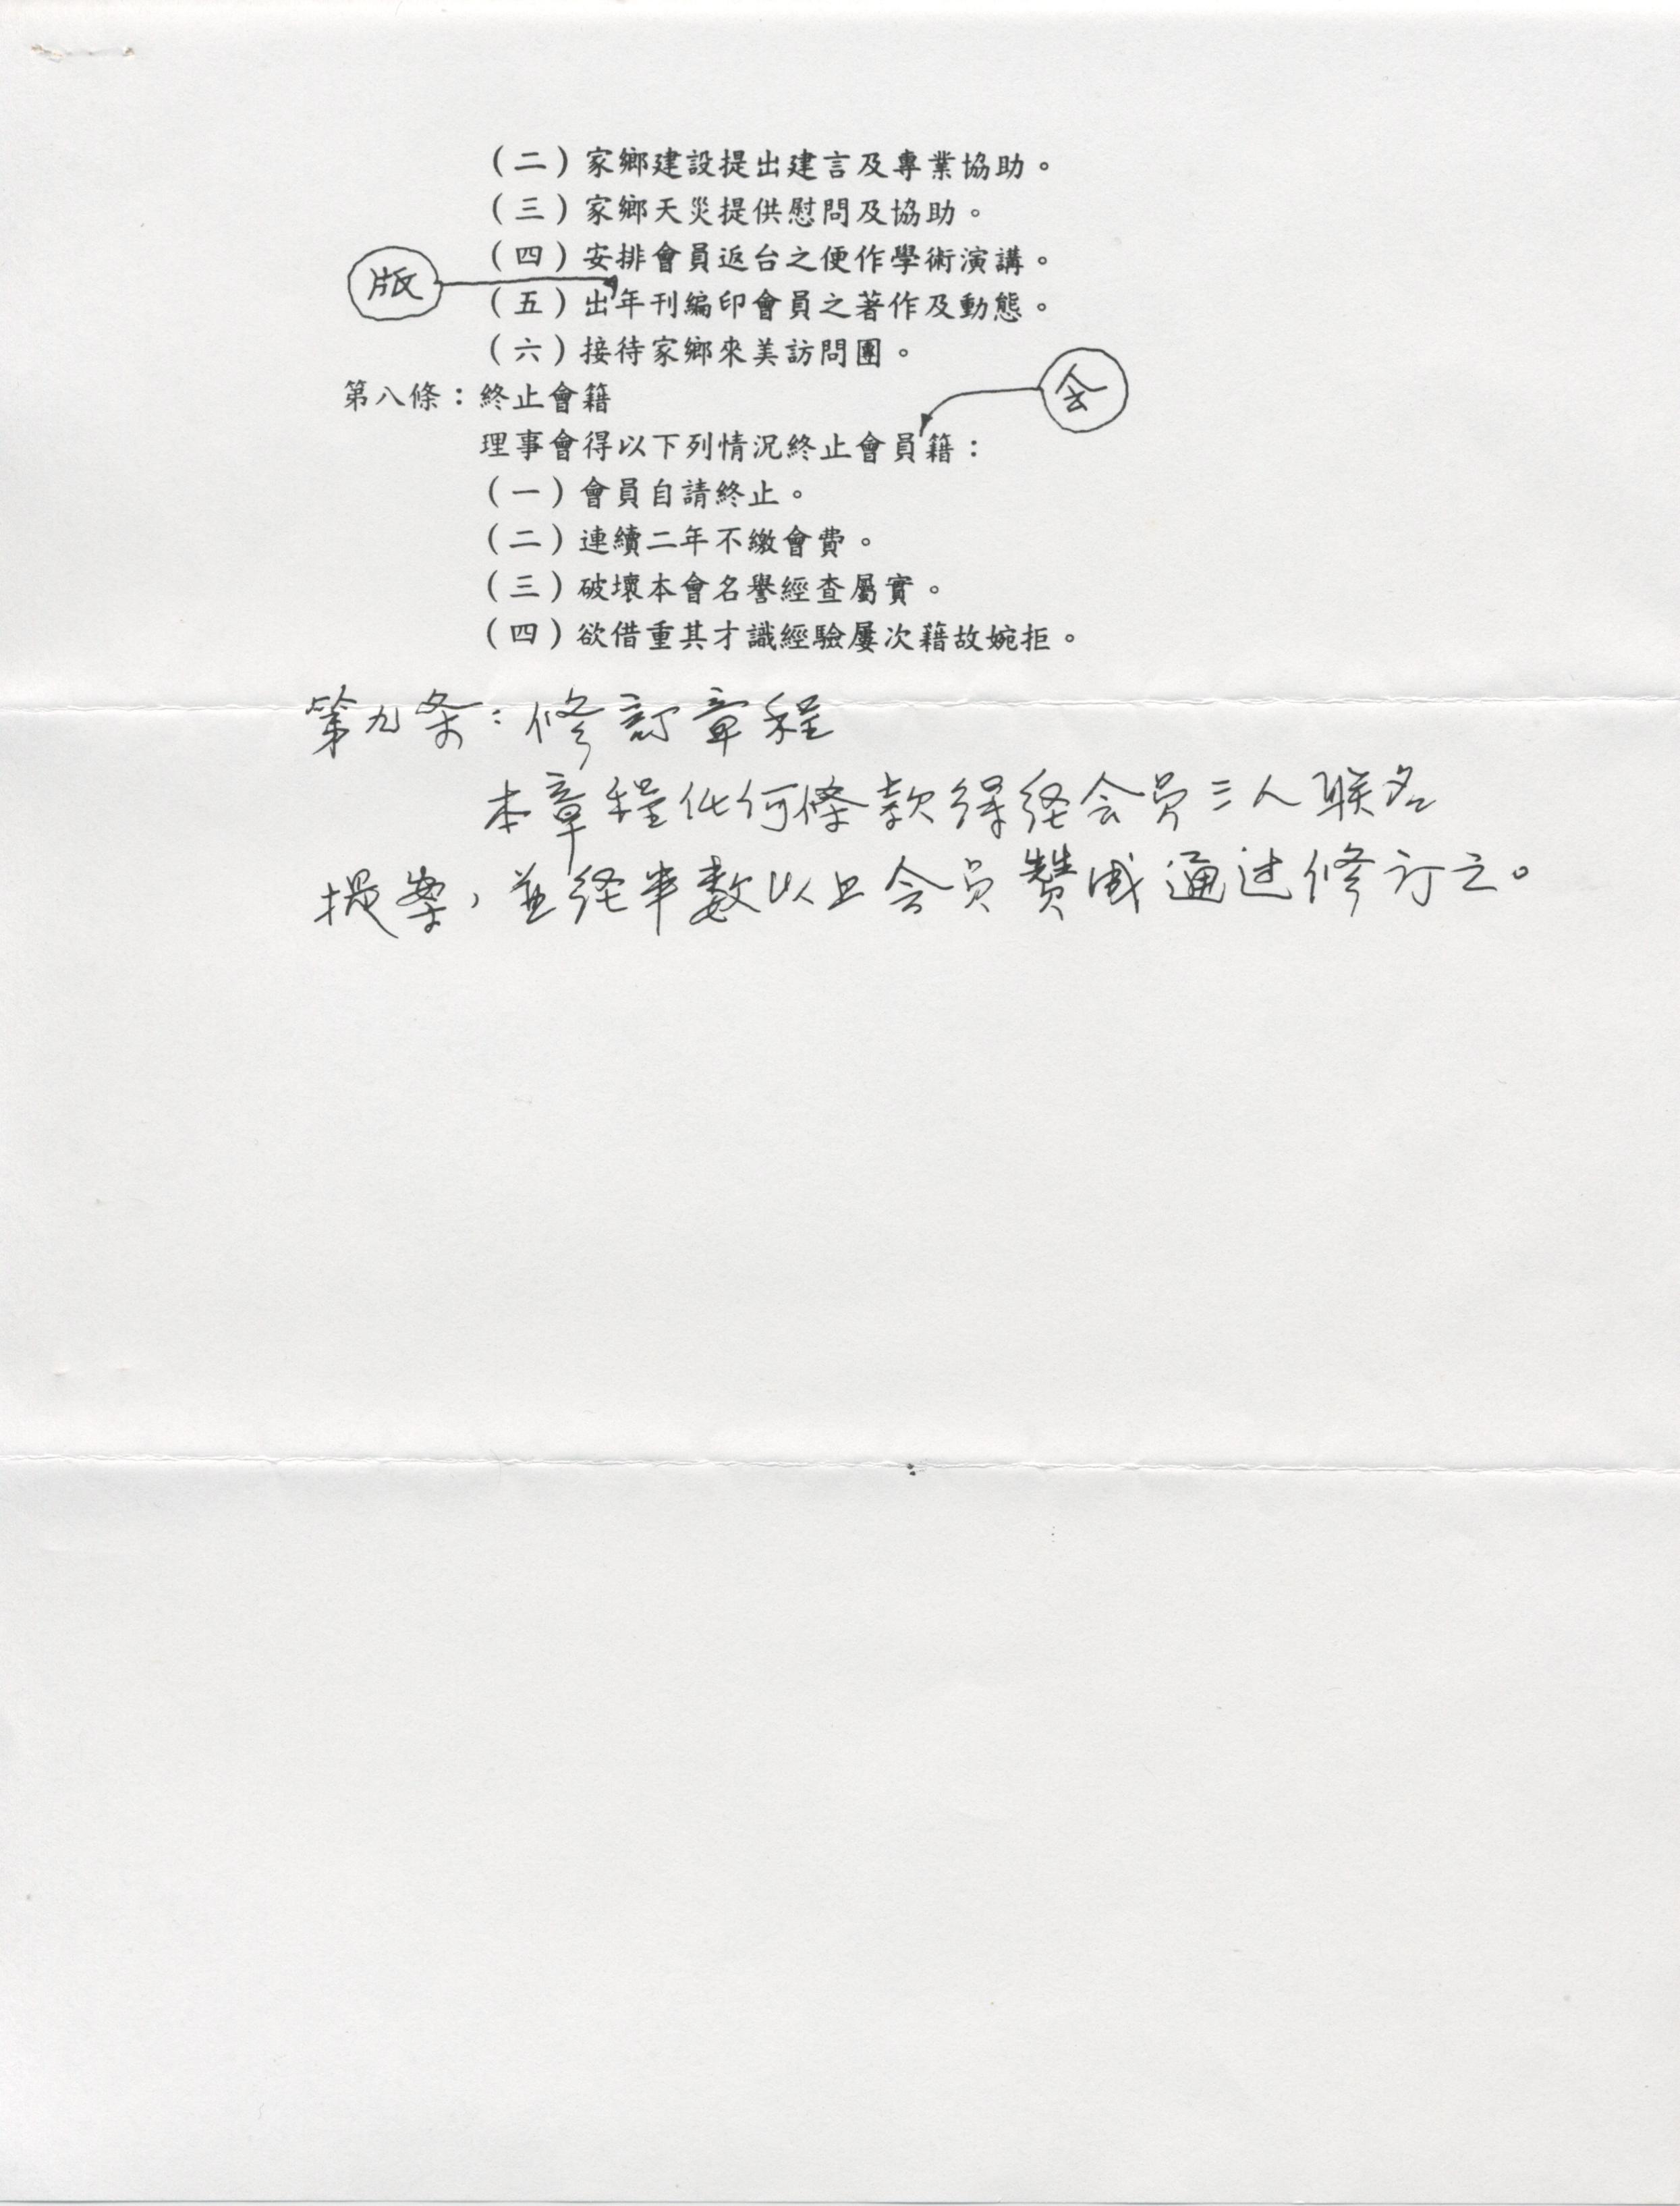 （二）家鄉建設提出建言及專業協助。
（三）家鄉天災提供慰問及協助。
（四）安排會員返台之便作學術演講。
版
（五）出年刊編印會員之著作及動態。
（六）接待家鄉來美訪問團。
会
第八條：終止會籍
理事會得以下列情況終止會員籍：
（一）會員自請終止。
（二）連續二年不繳會費。
（三）破壞本會名譽經查屬實。
（四）欲借重其才識經驗屢次藉故婉拒。
第九条：修訂章程
本章程任何條款得经会员三人联名
提案，並经半數以上会员贊成通过修订之。